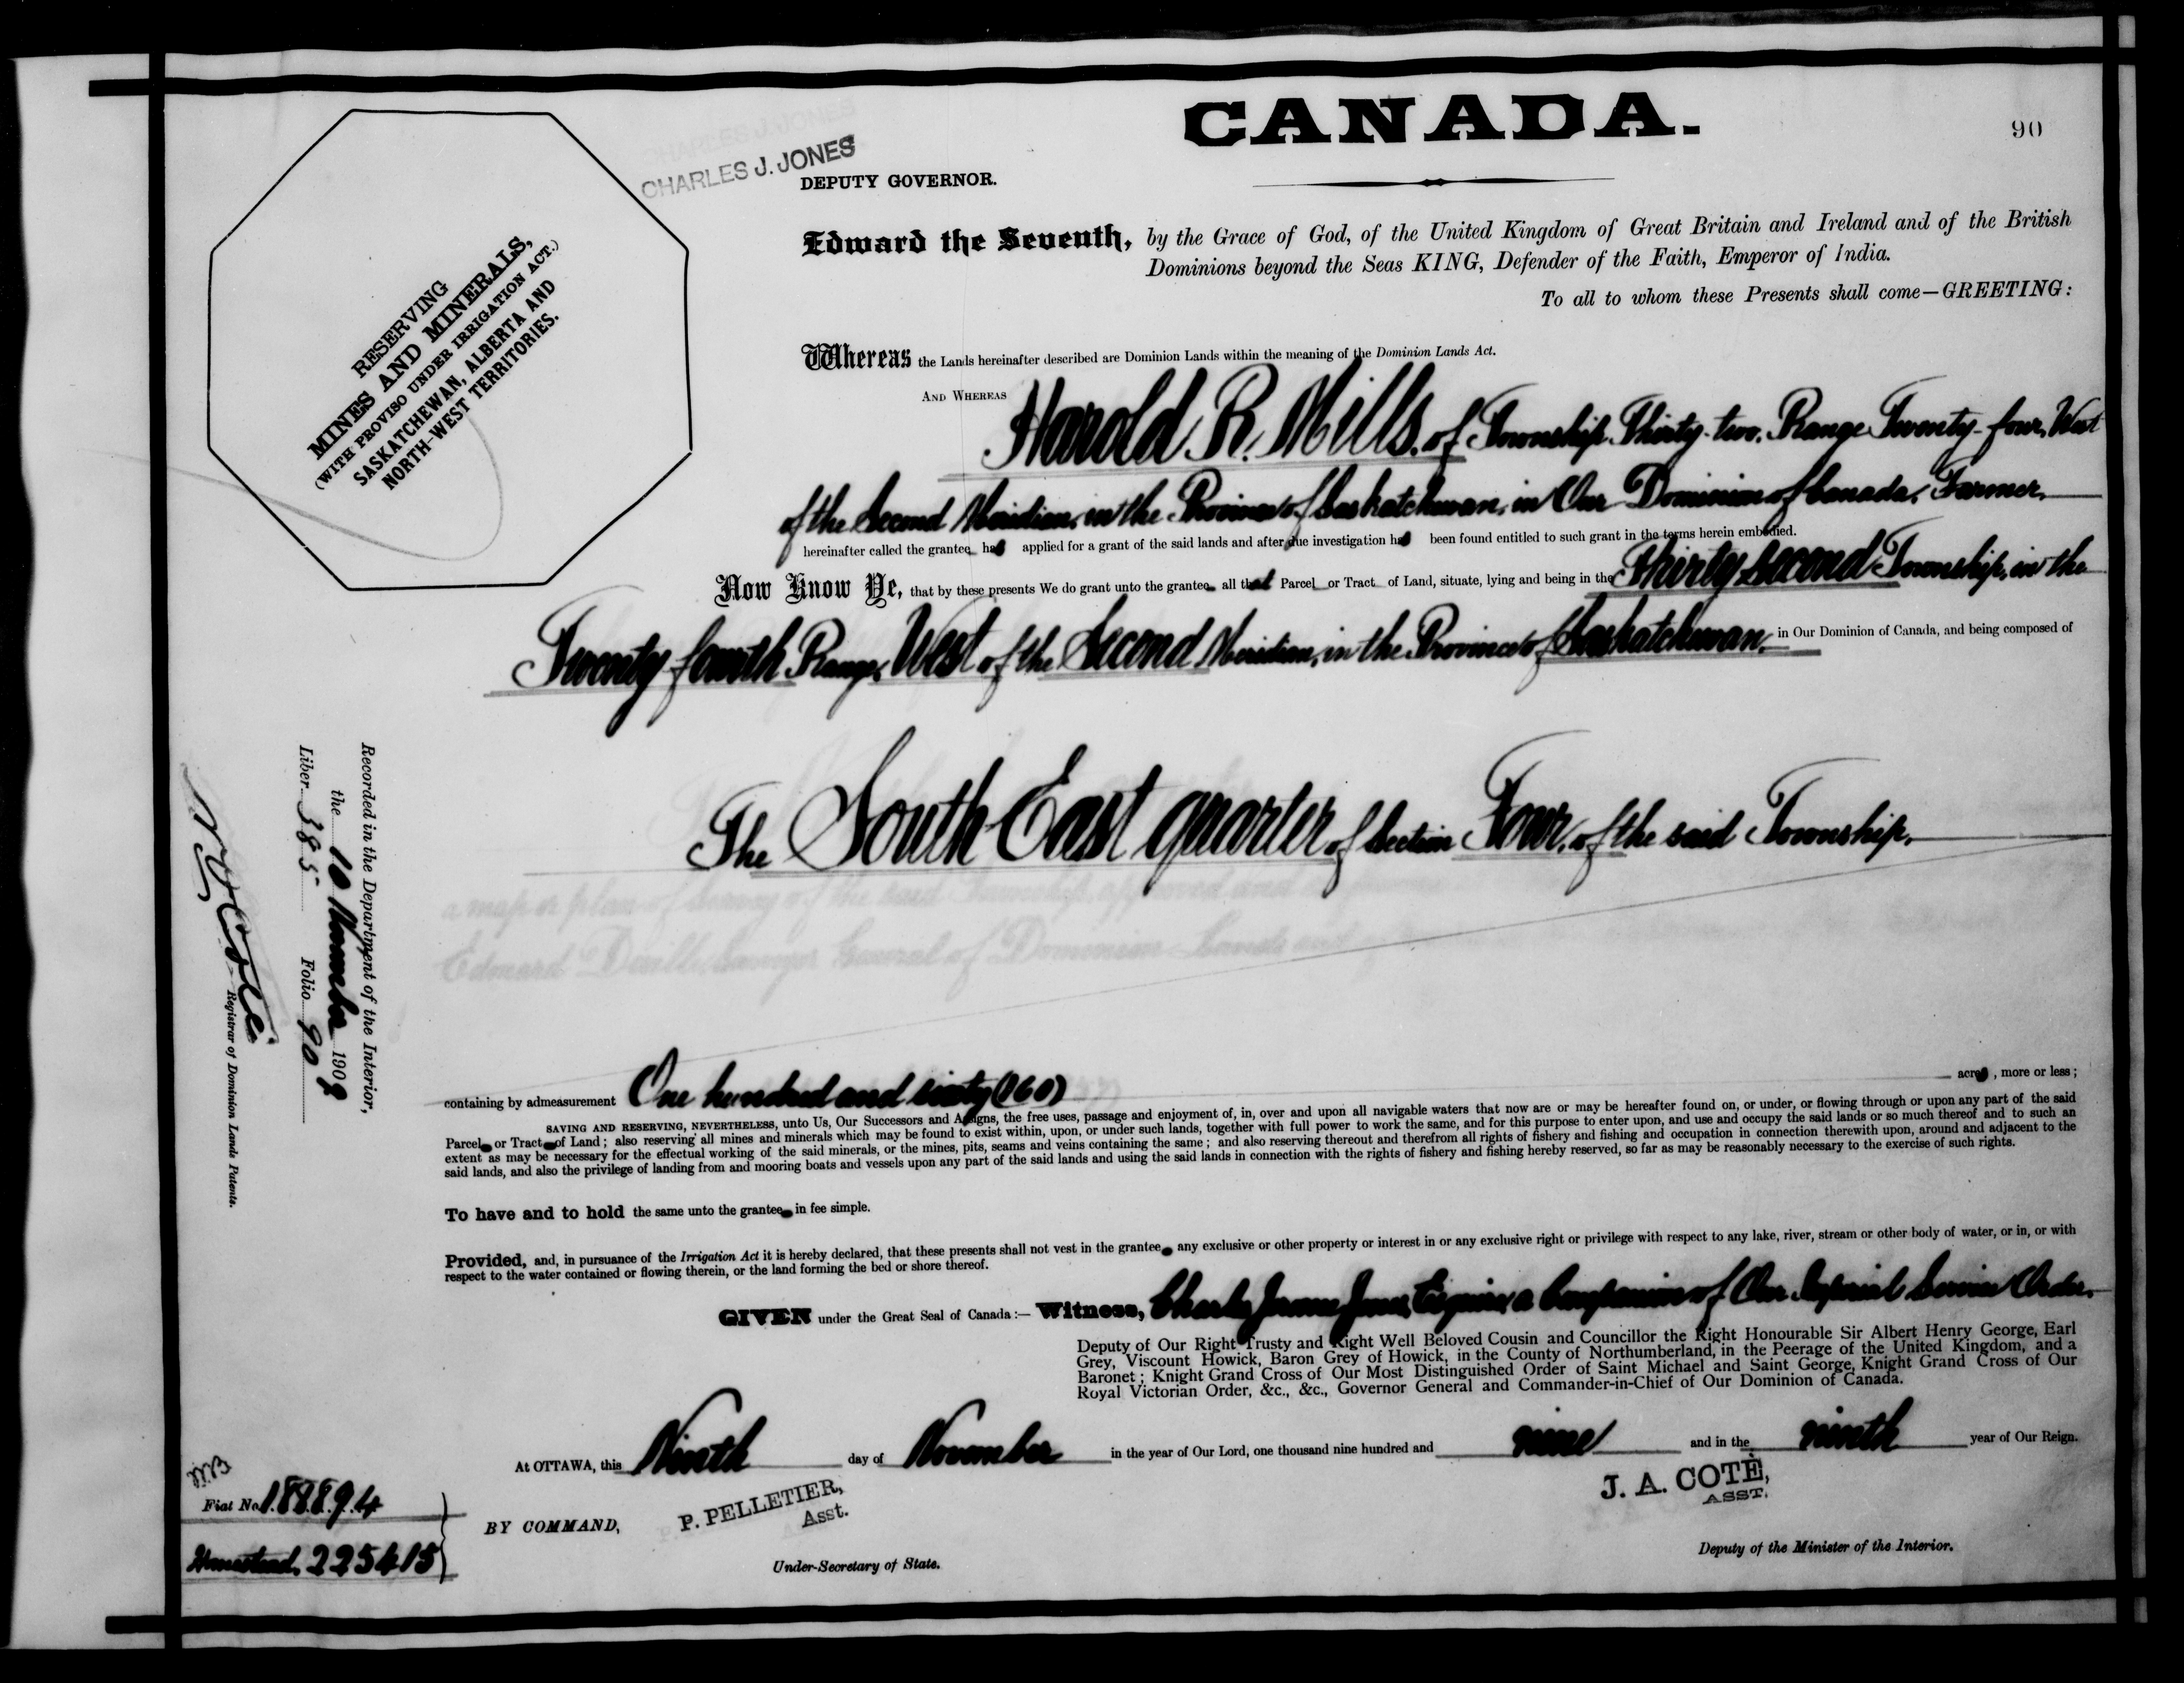 CANADA.
90
CHARLES J. JONES
DEPUTY GOVERNOR.
RESERVING
MINES AND MINERALS,
(WITH PROVISO UNDER IRRIGATION ACT.)
SASKATCHEWAN, ALBERTA AND
NORTH-WEST TERRITORIES.
Edward the Seventh, by the Grace of God, of the United Kingdom of Great Britain and Ireland and of the British
Dominions beyond the Seas KING, Defender of the Faith, Emperor of India.
To all to whom these Presents shall come—GREETING:
Whereas the Lands hereinafter described are Dominion Lands within the meaning of the Dominion Lands Act.
AND WHEREAS Harold R. Mills, of Township Thirty-two, Range Twenty-four, West
of the Second Meridian, in the Province of Saskatchewan, in Our Dominion of Canada, Farmer,
hereinafter called the grantee has applied for a grant of the said lands and after due investigation has been found entitled to such grant in the terms herein embodied.
Now Know Ye, that by these presents We do grant unto the grantee all that Parcel or Tract of Land, situate, lying and being in the Thirty second Township, in the
Twenty fourth Range, West of the Second Meridian, in the Province of Saskatchewan, in Our Dominion of Canada, and being composed of
The South East quarter of Section Four, of the said Township.
a map or plan of Survey of the said Township, approved and
Edouard Deville, Surveyor General of Dominion Lands and
containing by admeasurement One hundred and sixty (160) acres, more or less;
SAVING AND RESERVING, NEVERTHELESS, unto Us, Our Successors and Assigns, the free uses, passage and enjoyment of, in, over and upon all navigable waters that now are or may be hereafter found on, or under, or flowing through or upon any part of the said
Parcel or Tract of Land; also reserving all mines and minerals which may be found to exist within, upon, or under such lands, together with full power to work the same, and for this purpose to enter upon, and use and occupy the said lands or so much thereof and to such an
extent as may be necessary for the effectual working of the said minerals, or the mines, pits, seams and veins containing the same; and also reserving thereout and therefrom all rights of fishery and fishing and occupation in connection therewith upon, around and adjacent to the
said lands, and also the privilege of landing from and mooring boats and vessels upon any part of the said lands and using the said lands in connection with the rights of fishery and fishing hereby reserved, so far as may be reasonably necessary to the exercise of such rights.
To have and to hold the same unto the grantee in fee simple.
Provided, and, in pursuance of the Irrigation Act it is hereby declared, that these presents shall not vest in the grantee any exclusive or other property or interest in or any exclusive right or privilege with respect to any lake, river, stream or other body of water, or in, or with
respect to the water contained or flowing therein, or the land forming the bed or shore thereof.
GIVEN under the Great Seal of Canada:— Witness, Charles Jerome Jones, Esquire, a Companion of Our Imperial Service Order,
Deputy of Our Right Trusty and Right Well Beloved Cousin and Councillor the Right Honourable Sir Albert Henry George, Earl
Grey, Viscount Howick, Baron Grey of Howick, in the County of Northumberland, in the Peerage of the United Kingdom, and a
Baronet; Knight Grand Cross of Our Most Distinguished Order of Saint Michael and Saint George, Knight Grand Cross of Our
Royal Victorian Order, &c., &c., Governor General and Commander-in-Chief of Our Dominion of Canada.
At OTTAWA, this Ninth day of November in the year of Our Lord, one thousand nine hundred and nine and in the ninth year of Our Reign.
BY COMMAND,
P. PELLETIER,
Asst.
Under-Secretary of State.
J. A. COTÉ,
ASST.
Deputy of the Minister of the Interior.
Recorded in the Department of the Interior,
the 10 November 1909
Liber 385 Folio 90
Registrar of Dominion Lands Patents.
Fiat No. 188894
Homestead, 225415